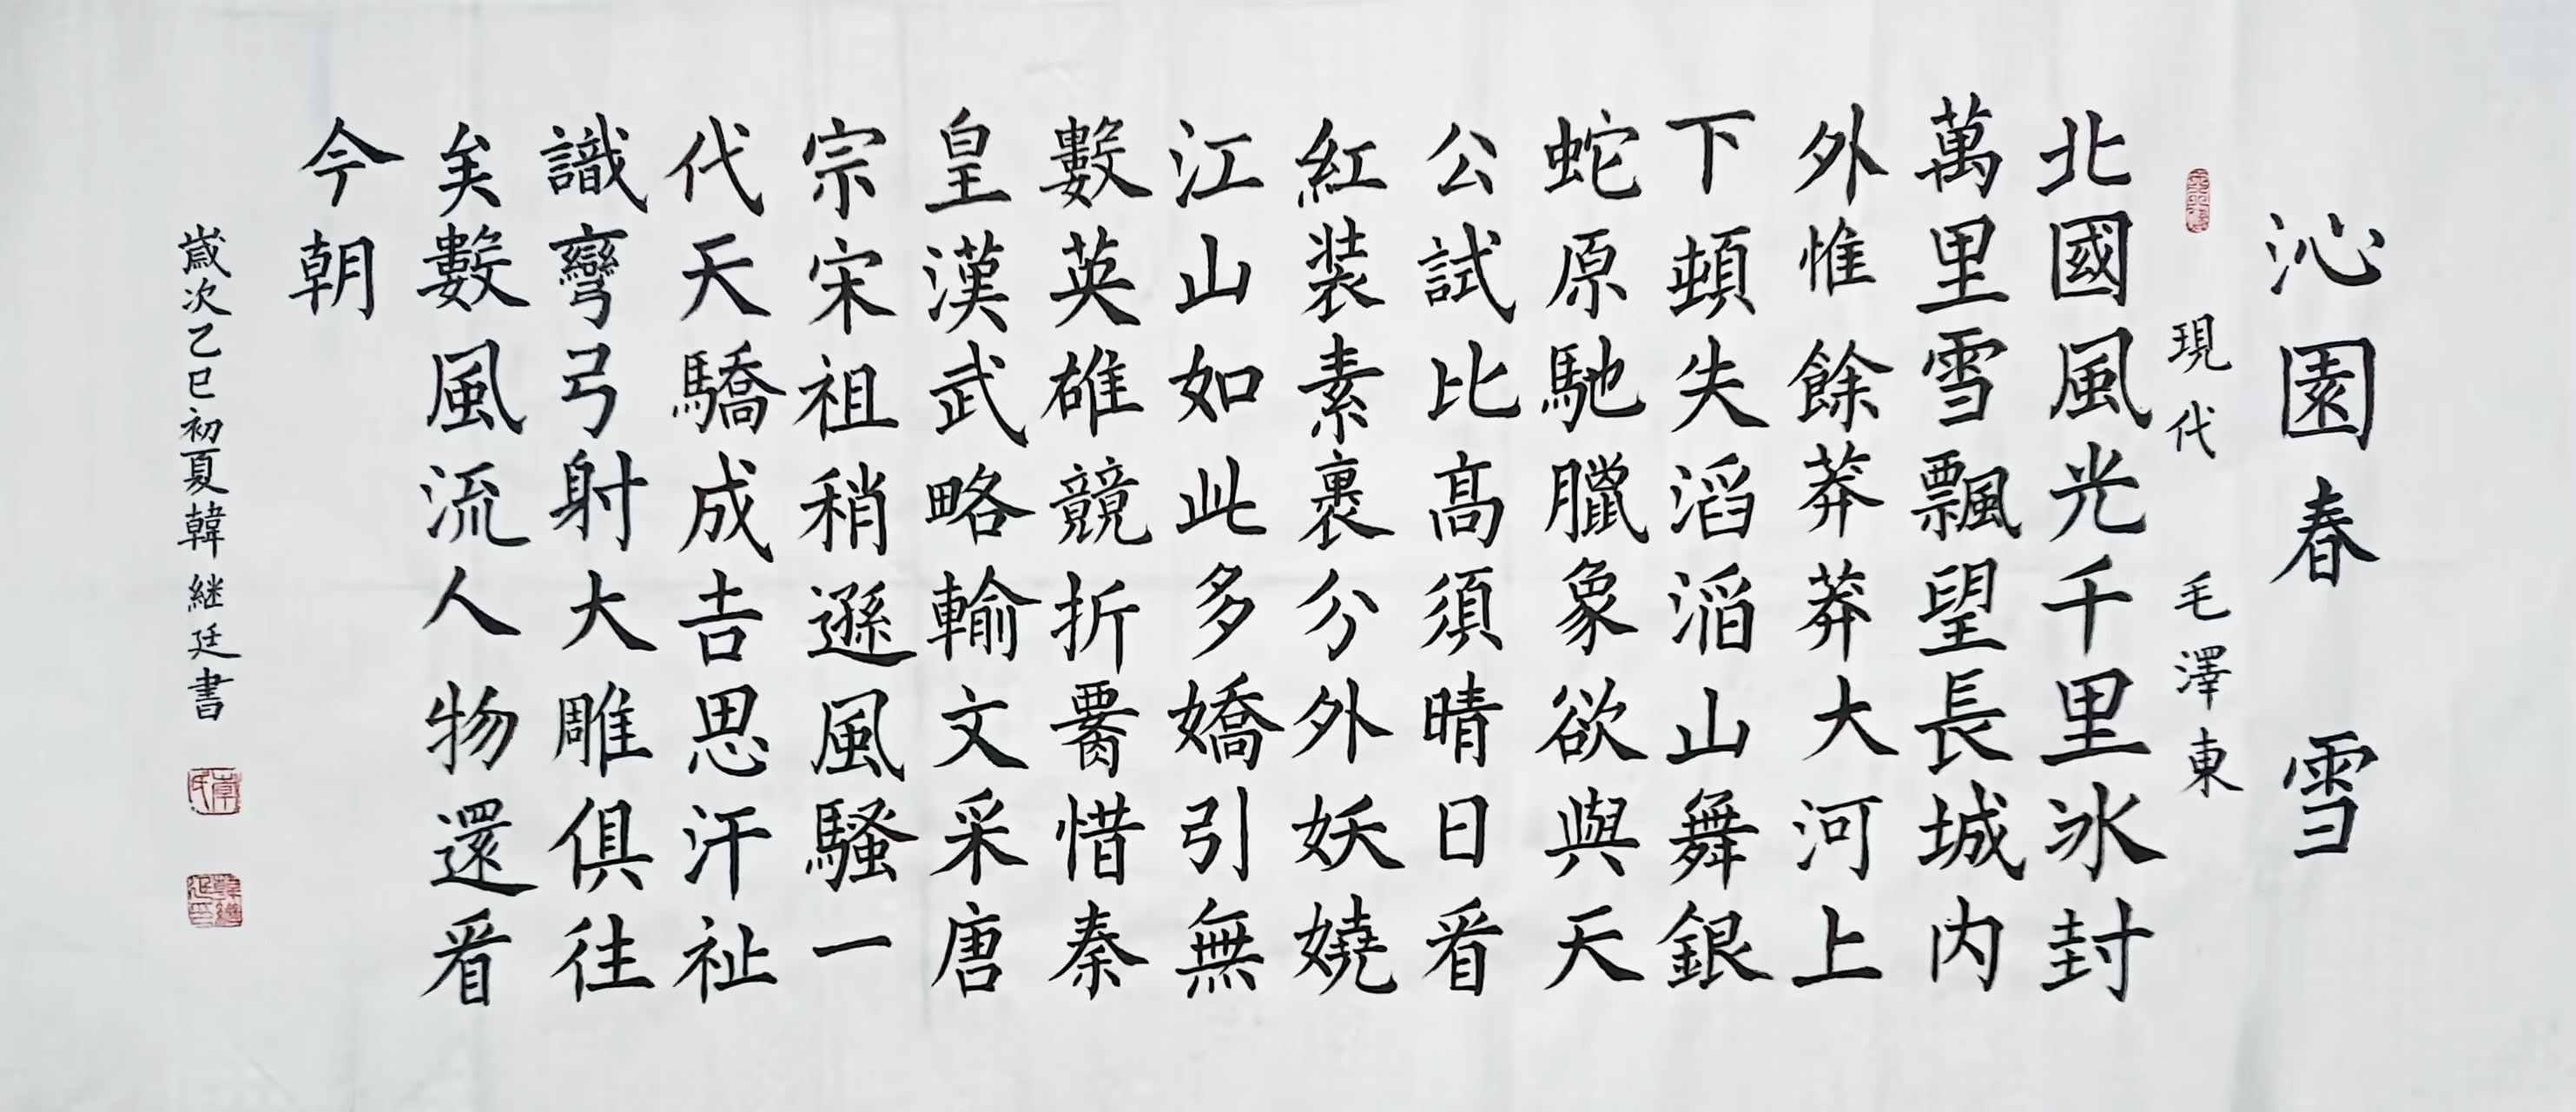 沁園春 雪
現代 毛澤東
北國風光千里冰封
萬里雪飄望長城内
外惟餘莽莽大河上
下頓失滔滔山舞銀
蛇原馳臘象欲與天
公試比高須晴日看
紅装素裹分外妖嬈
江山如此多嬌引無
數英雄競折腰惜秦
皇漢武略輸文采唐
宗宋祖稍遜風騷一
代天驕成吉思汗祉
識彎弓射大雕俱往
矣數風流人物還看
今朝
歲次乙巳初夏韓継廷書